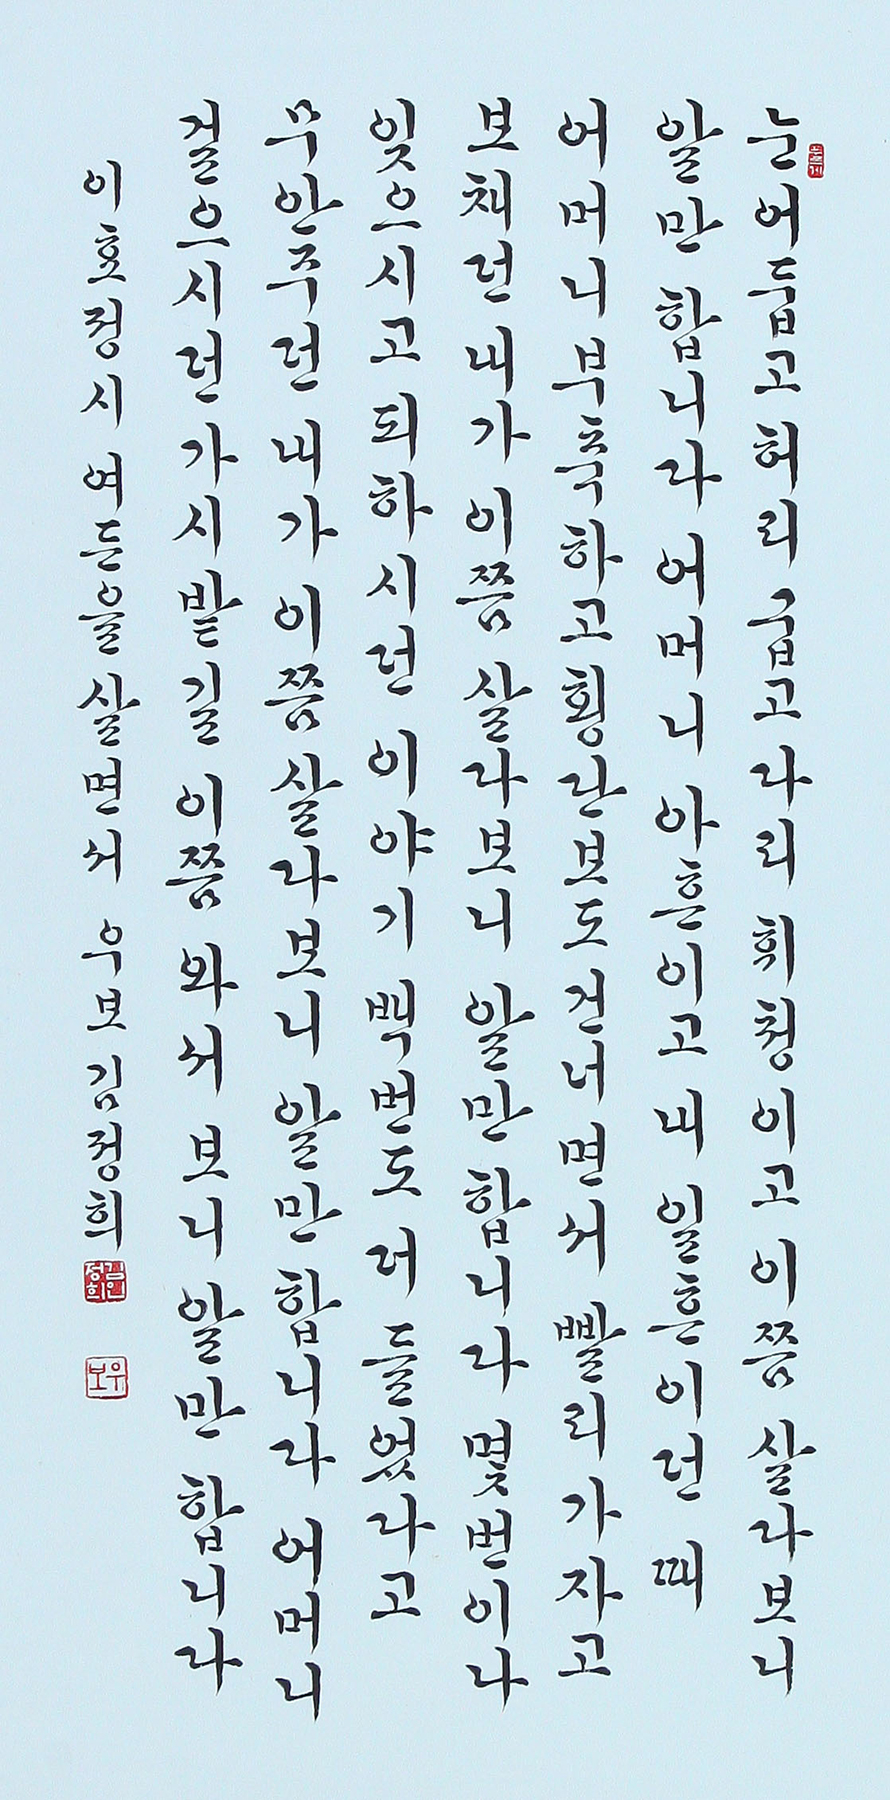 눈 어둡고 허리 굽고 다리 휘청이고 이쯤 살다보니
알만 합니다 어머니 아흔이고 내 일흔이던 때
어머니 부축하고 횡단보도 건너면서 빨리가자고
보채던 내가 이쯤 살다보니 알만 합니다 몇번이나
잊으시고 되하시던 이야기 백번도 더 들었다고
무안주던 내가 이쯤 살다보니 알만 합니다 어머니
걸으시던 가시밭길 이쯤 와서 보니 알만 합니다
이효정시 여든을 살면서 우보 김정희
김정희인
우보